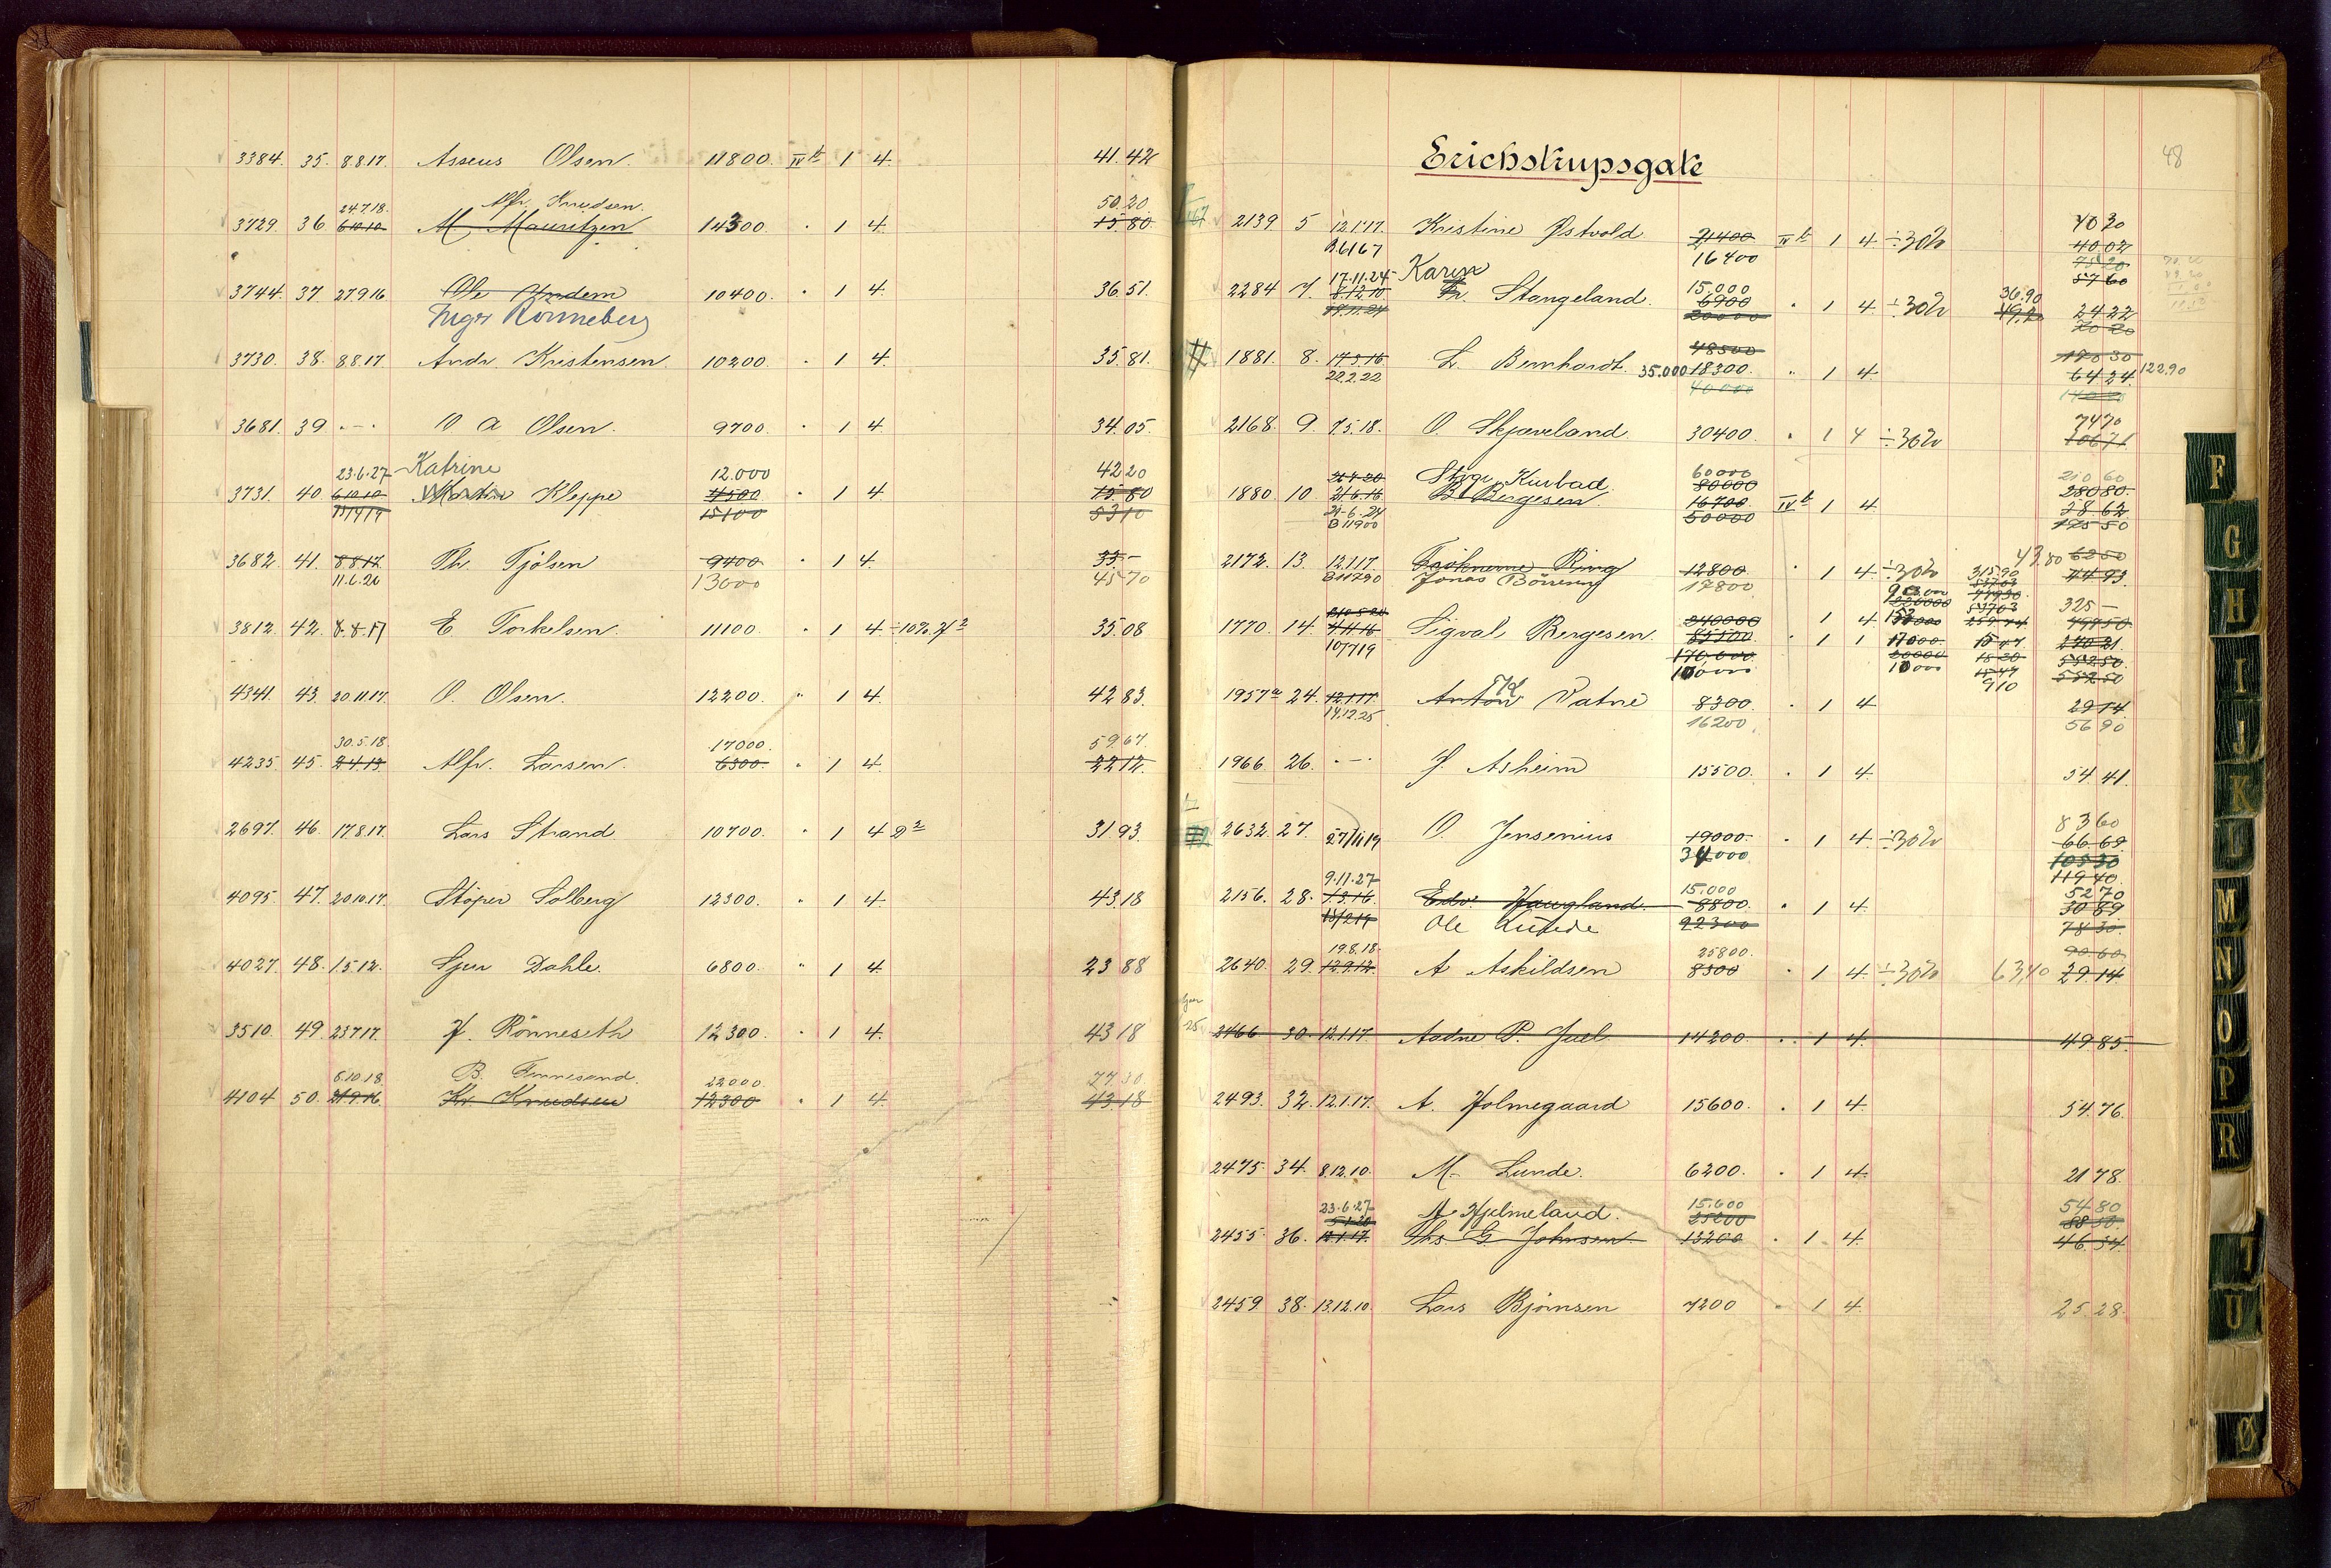 3384. 35. 8.8.17. Asseus Olsen. 11800. IV b 1 4. 41.42
24.7.18. Alfr. Knudsen. 50.20.
3729. 36 6.10.10 M. Mauritzen 14300 " 1 4. 15.80.
3744. 37 27.9.16 Ole Undem 10400. " 1 4. 36.51.
Inger Rönneberg
3730. 38. 8.8.17. Andr. Kristensen. 10200. " 1 4. 35.81.
3681. 39 " — " O A Olsen. 9700. " 1 4. 34.05.
23.6.27 Katrine 12.000 42 20
3731. 40. 6.10.10 Martin Kleppe 4500 " 1 4. 15.80
15/4 19 15100 53 10
3682. 41. 8.8.17. Th. Tjølsen 9400. " 1 4. 33.-
11.6.20 13000 45 70
3812. 42. 8.8.17 E. Torkelsen. 11100. " 1 4. 35.08
4341. 43. 20.11.17. O. Olsen. 12200. " 1 4. 42 83.
30.5.18. 17000. 59.67.
4235. 45. 2.4.13. Alfr. Larsen. 6300. " 1 4. 22 12.
2697. 46. 17.8.17. Lars Strand 10700. " 1 4 31.93.
4095. 47. 20.10.17. Støper Solberg 12300. " 1 4. 43.18
4027. 48. 1.5.12. Sjur Dahle. 6800. " 1 4. 23 88
3510. 49. 23.7.17. J. Rönneseth 12300. " 1 4. 43 18
8.10.18. B. Finnesand. 22000. 77.30.
4104 50. 21.9.16 Kr. Knudsen 12300 " 1 4. 43.18
48
Erichstrupsgate
2139 5 12.1.17. Kristine Østvold. 21400 IV b 1 4 ÷30% 40 30
B 6167 16400 40 02
75 20
17.11.24 Karen 15.000 57 60
2284 7. 8.12.10 Stangeland. 6900 " 1 4 ÷30% 36.90 24 22
20000 49,20 70 20
48500 170 30
1881. 8. 14.5.16 L. Bernhardt. 35.000 18300. " 1 4. 64 24. 122.90
22.2.22 40000
2168. 9. 7.5.18. O. Skjæveland. 30400. " 1 4 ÷30% 74 70
106 71
Kurbad. 60000 210 60
80000 280 80.
1880. 10. 21.6.16 B. Bergesen. 16700. IV b 1 4. 58.62
24-6-24 50000 175 50
B 11900
2172. 13. 12.1.17. Frøknerne Ring 12800 " 1 4 ÷30% 43.80 62 50
B 11790 Jonas 17800 44 93
1770. 14. 4.11.16 Sigval Bergesen. 240000 1 4 325 —
85500 " 1 1 17000.
10/7 19 170.000 20000
10000
1957a 24. 12.1.17. Anton Vatne 8300. " 1 4 29 14.
14.12.25 16200. 56 90
1966. 26. " — " J. Asheim 15500. " 1 4. 54.41.
2632. 27. 27/11 19 O. Jensenius 19000. " 1 4. ÷30% 83 60
34000 66.69.
105 30
119 40.
9.11.27 15.000 52 70
2156. 28. 1.5.16. Edv. Haugland. 8800. " 1 4. 30 89
15/2 19 Ole 22300 78 30.
19.8.18. 25800. 90 60
2640. 29. 12.9.12. A Askildsen 8300 " 1 4. ÷30% 63,40 29.14
2466 30. 12.1.17. Aadne P. Juel 14200. " 1 4. 49 85.
2493. 32. 12.1.17. A. Holmegaard 15600. " 1 4. 54.76.
2475. 34. 8.12.10. M. Lunde. 6200. " 1 4. 21 78.
23.6.27 A. Hjelmeland. 15.600 54 80
5.1.20 25200 88 50.
2455. 36. 12.1.17. Ths. G. Johnsen 13200 " 1 4. 46.34.
2459 38. 13.12.10. Lars Bjørnsen 7200 " 1 4. 25.28.
F
G
H
I
J
K
L
M
N
O
P
R
T
U
Ø